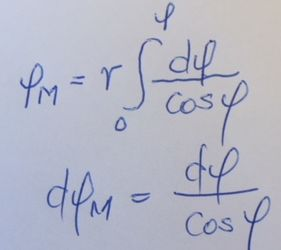 φ_M = r ∫_0^φ dφ/cosφ
dφ_M = dφ/cosφ